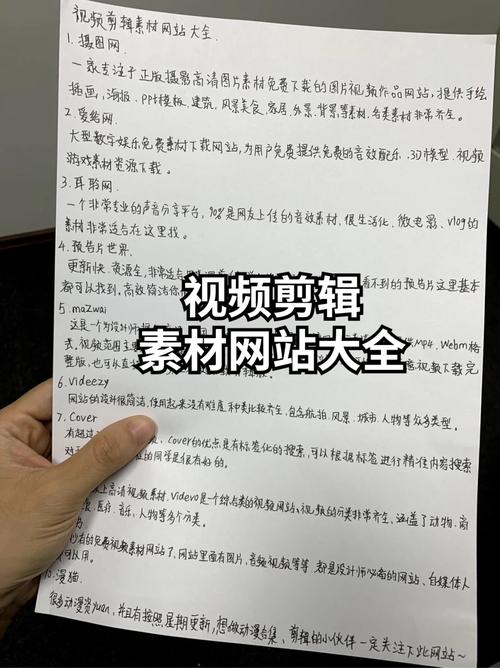 视频剪辑素材网站大全
1. 摄图网
一家专注于正版摄影高清图片素材免费下载的图片视频作品网站，提供手绘
插画，海报、ppt模板、建筑、风景美食、家居、外景、背景等素材，各类素材非常齐全。
2. 爱给网
大型数字娱乐免费素材下载网站，为用户免费提供免费的音效配乐、3D模型、视频
游戏素材资源下载。
3. 耳聆网
一个非常专业的声音分享平台，90%是网友上传的音效素材，很生活化、微电影、vlog的
素材非常适合在这里找。
4. 预告片世界
更新快、资源全，非常适合
看不到的预告片这里基本
都可以找到。高效简洁
视频剪辑
素材网站大全
5. mazwai
这是一个为设计师
供MP4、Webm格
式。视频范围主
意视频下载完
整版，也可以直
6. Videezy
网站的设计很简洁，使用起来没有难度，种类比较齐全，包含航拍、风景、城市、人物等众多类型。
7. Cover
有超过
Cover的优点是有标签化的搜索，可以根据标签进行精准内容搜索
对于
的同学是很有好的。
上高清视频素材，Videvo是一个综合类的视频网站，视频的分类非常齐全，涵盖了动物、商
医疗、音乐、人物等多个分类。
必有的免费视频素材网站了，网站里面有图片，音频视频等等，都是设计师必备的网站、自媒体人
可以用。
漫猫
很多动漫资yuan，并且有按照星期更新，想做动漫合集、剪辑的小伙伴一定关注下此网站~